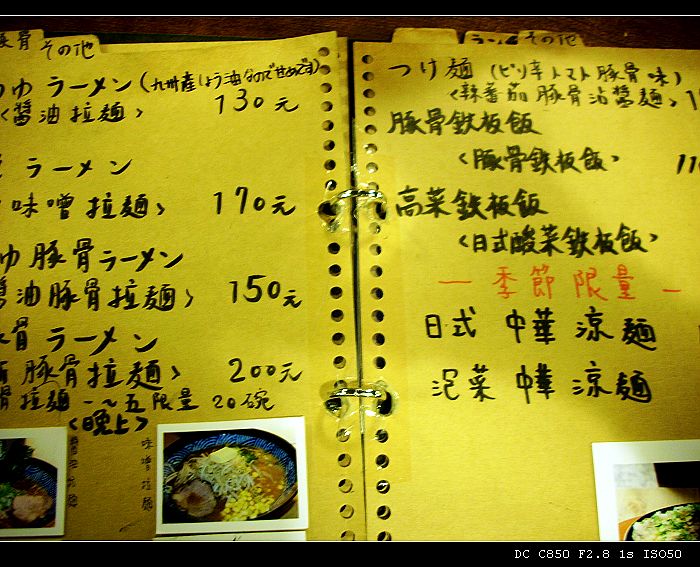 豚骨 その他
ラーメン (九州産しょう油なので甘めです)
<醬油拉麺> 130元
ラーメン
味噌拉麺> 170元
ゆ豚骨ラーメン
醬油豚骨拉麺> 150元
骨ラーメン
豚骨拉麺> 200元
骨拉麺 一～五限量 20碗
<晚上>
味噌拉麺
その他
つけ麺 (ピリ辛トマト豚骨味)
<辣番茄豚骨沾醬麺>
豚骨鉄板飯
<豚骨鉄板飯>
高菜鉄板飯
<日式酸菜鉄板飯>
— 季節限量 —
日式 中華 涼麺
泡菜 中華 涼麺
DC C850 F2.8 1s ISO50